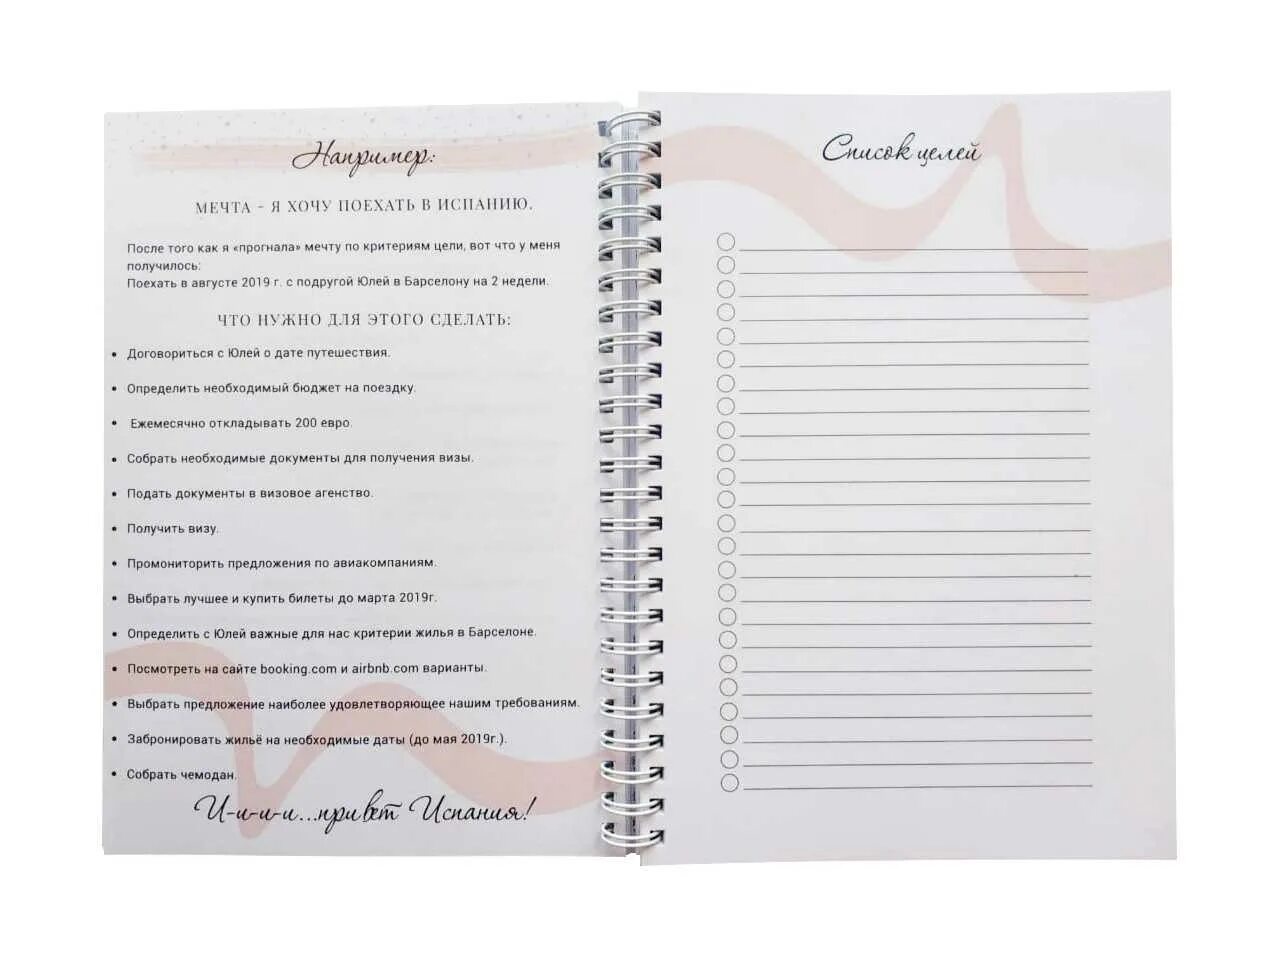 Например:
МЕЧТА - Я ХОЧУ ПОЕХАТЬ В ИСПАНИЮ.
После того как я «прогнала» мечту по критериям цели, вот что у меня
получилось:
Поехать в августе 2019 г. с подругой Юлей в Барселону на 2 недели.
ЧТО НУЖНО ДЛЯ ЭТОГО СДЕЛАТЬ:
• Договориться с Юлей о дате путешествия.
• Определить необходимый бюджет на поездку.
• Ежемесячно откладывать 200 евро.
• Собрать необходимые документы для получения визы.
• Подать документы в визовое агенство.
• Получить визу.
• Промониторить предложения по авиакомпаниям.
• Выбрать лучшее и купить билеты до марта 2019г.
• Определить с Юлей важные для нас критерии жилья в Барселоне.
• Посмотреть на сайте booking.com и airbnb.com варианты.
• Выбрать предложение наиболее удовлетворяющее нашим требованиям.
• Забронировать жильё на необходимые даты (до мая 2019г.).
• Собрать чемодан.
И-и-и-и...привет Испания!
Список целей